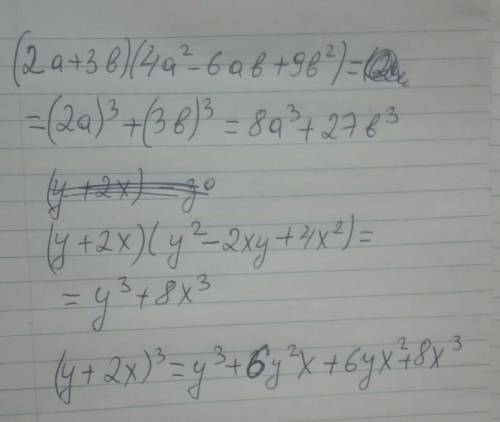 (2a+3b)(4a²-6ab+9b²)=
=(2a)³+(3b)³=8a³+27b³
(y+2x)
(y+2x)(y²-2xy+4x²)=
=y³+8x³
(y+2x)³=y³+6y²x+6yx²+8x³